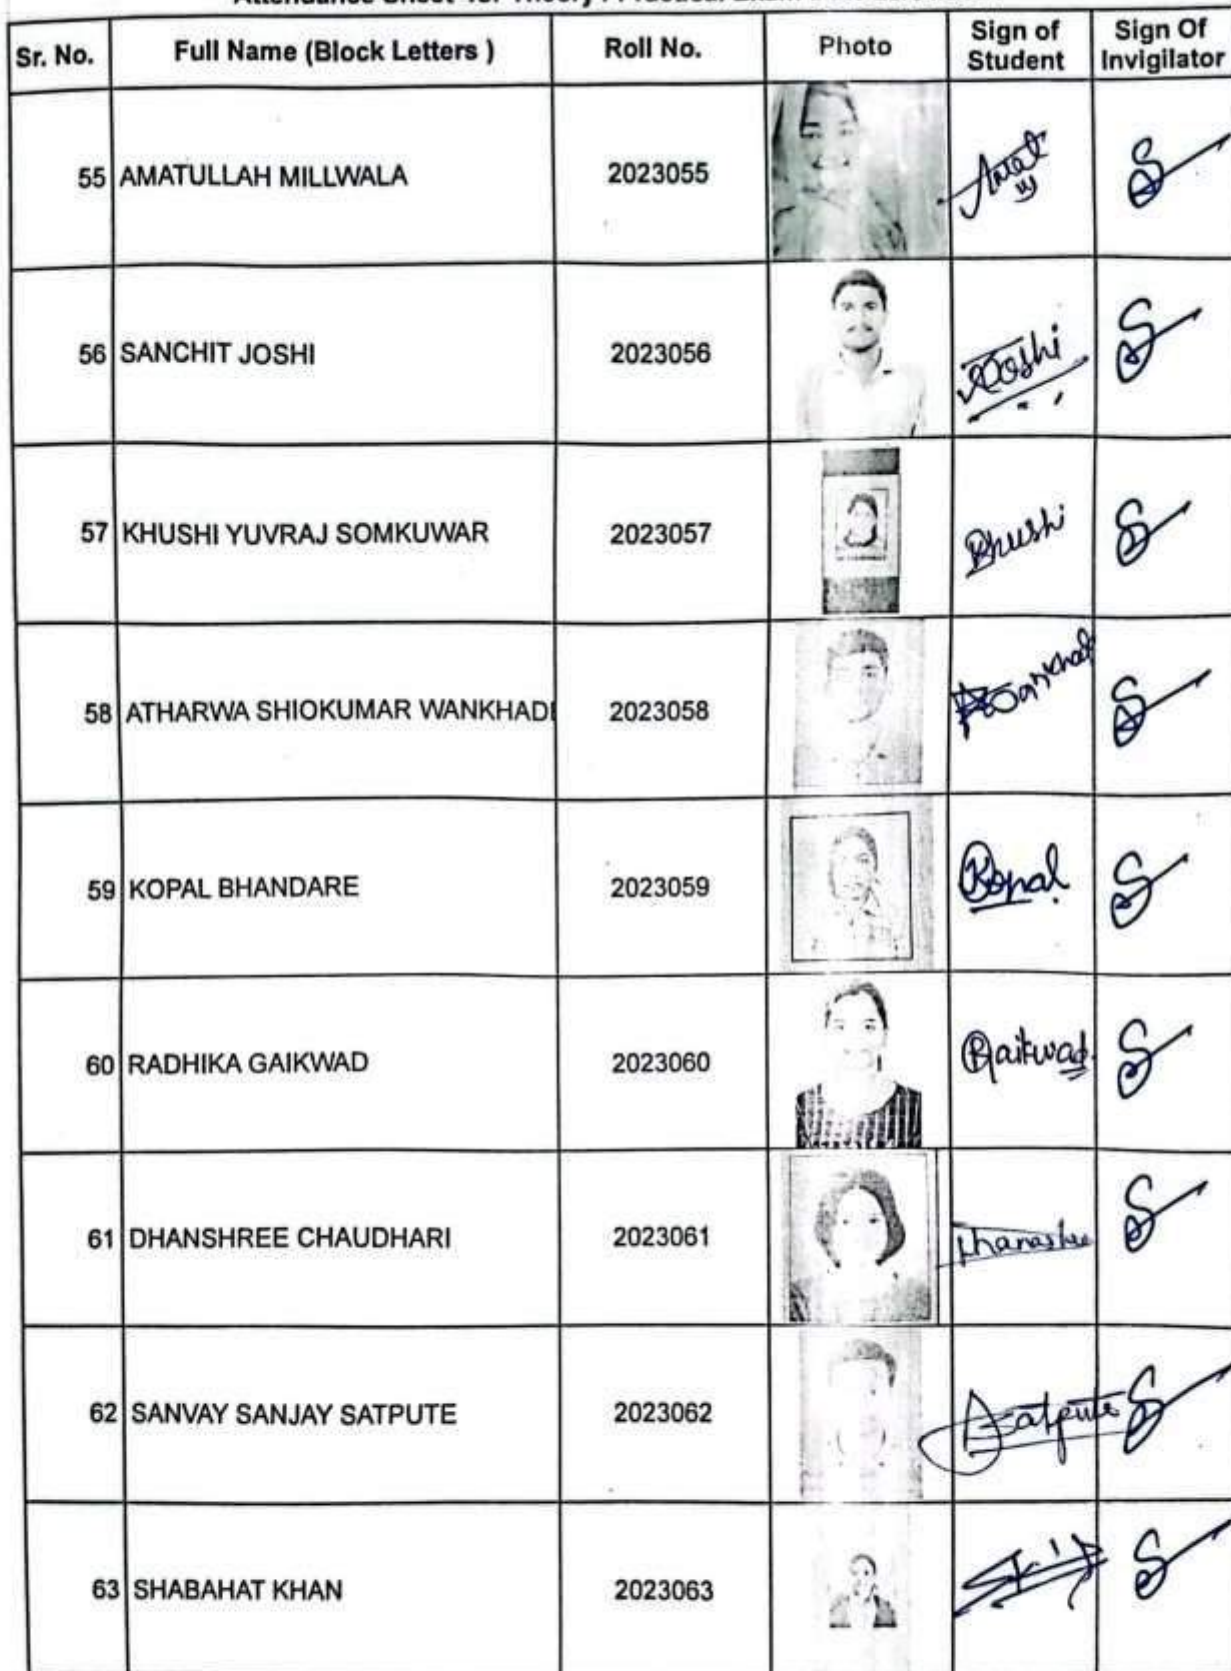 Attendance Sheet for Theory / Practical Exam
Sr. No. Full Name (Block Letters ) Roll No. Photo Sign of Student Sign Of Invigilator
55 AMATULLAH MILLWALA 2023055
56 SANCHIT JOSHI 2023056 Joshi
57 KHUSHI YUVRAJ SOMKUWAR 2023057 Khushi
58 ATHARWA SHIOKUMAR WANKHAD 2023058
59 KOPAL BHANDARE 2023059 Kopal
60 RADHIKA GAIKWAD 2023060 Gaikwad
61 DHANSHREE CHAUDHARI 2023061 Dhanashree
62 SANVAY SANJAY SATPUTE 2023062 Satpute
63 SHABAHAT KHAN 2023063